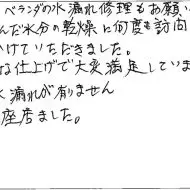 ベランダの水漏れ修理をお願い
んだ水分の乾燥に何度も訪問
けていただきました。
な仕上げで大変満足していま
水漏れが有りません
座居ました。